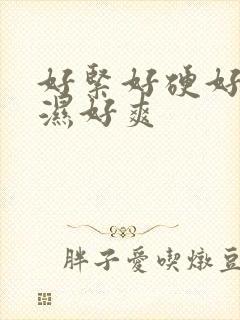 好緊好硬好
濕好爽
胖子愛喫燉豆